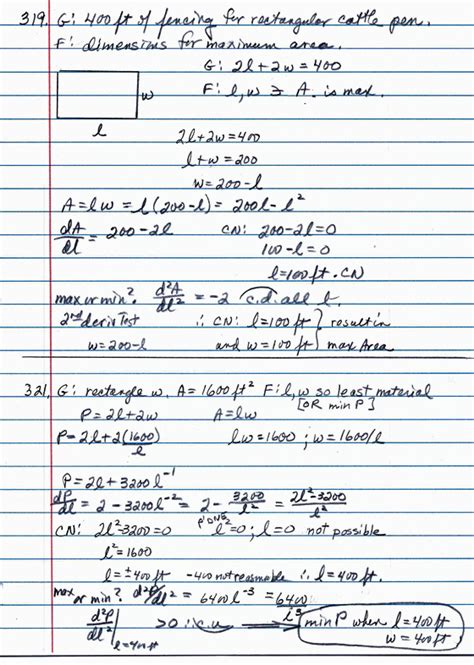 319. G: 400 ft of fencing for rectangular cattle pen.
F: dimensions for maximum area.
G: 2l + 2w = 400
w F: l, w ∋ A. is max.
l
2l + 2w = 400
l + w = 200
w = 200 - l
A = lw = l(200 - l) = 200l - l²
dA/dl = 200 - 2l CN: 200 - 2l = 0
100 - l = 0
l = 100 ft. CN
max or min? d²A/dl² = -2 c.d. all l.
2nd deriv Test ∴ CN: l = 100 ft } result in
w = 200 - l and w = 100 ft } max Area
321. G: rectangle w. A = 1600 ft² F: l, w so least material
[OR min P]
P = 2l + 2w A = lw
P = 2l + 2(1600)/l lw = 1600 ; w = 1600/l
P = 2l + 3200 l⁻¹
dP/dl = 2 - 3200 l⁻² = 2 - 3200/l² = 2l² - 3200/l²
CN: 2l² - 3200 = 0 P' DNE l² = 0 ; l = 0 not possible
l² = 1600
l = ±400 ft -400 not reasonable ∴ l = 400 ft.
max or min? d²P/dl² = 6400 l⁻³ = 6400/l³
d²P/dl² | l = 400 ft > 0 ∴ c.u. → min P when l = 400 ft
w = 400 ft